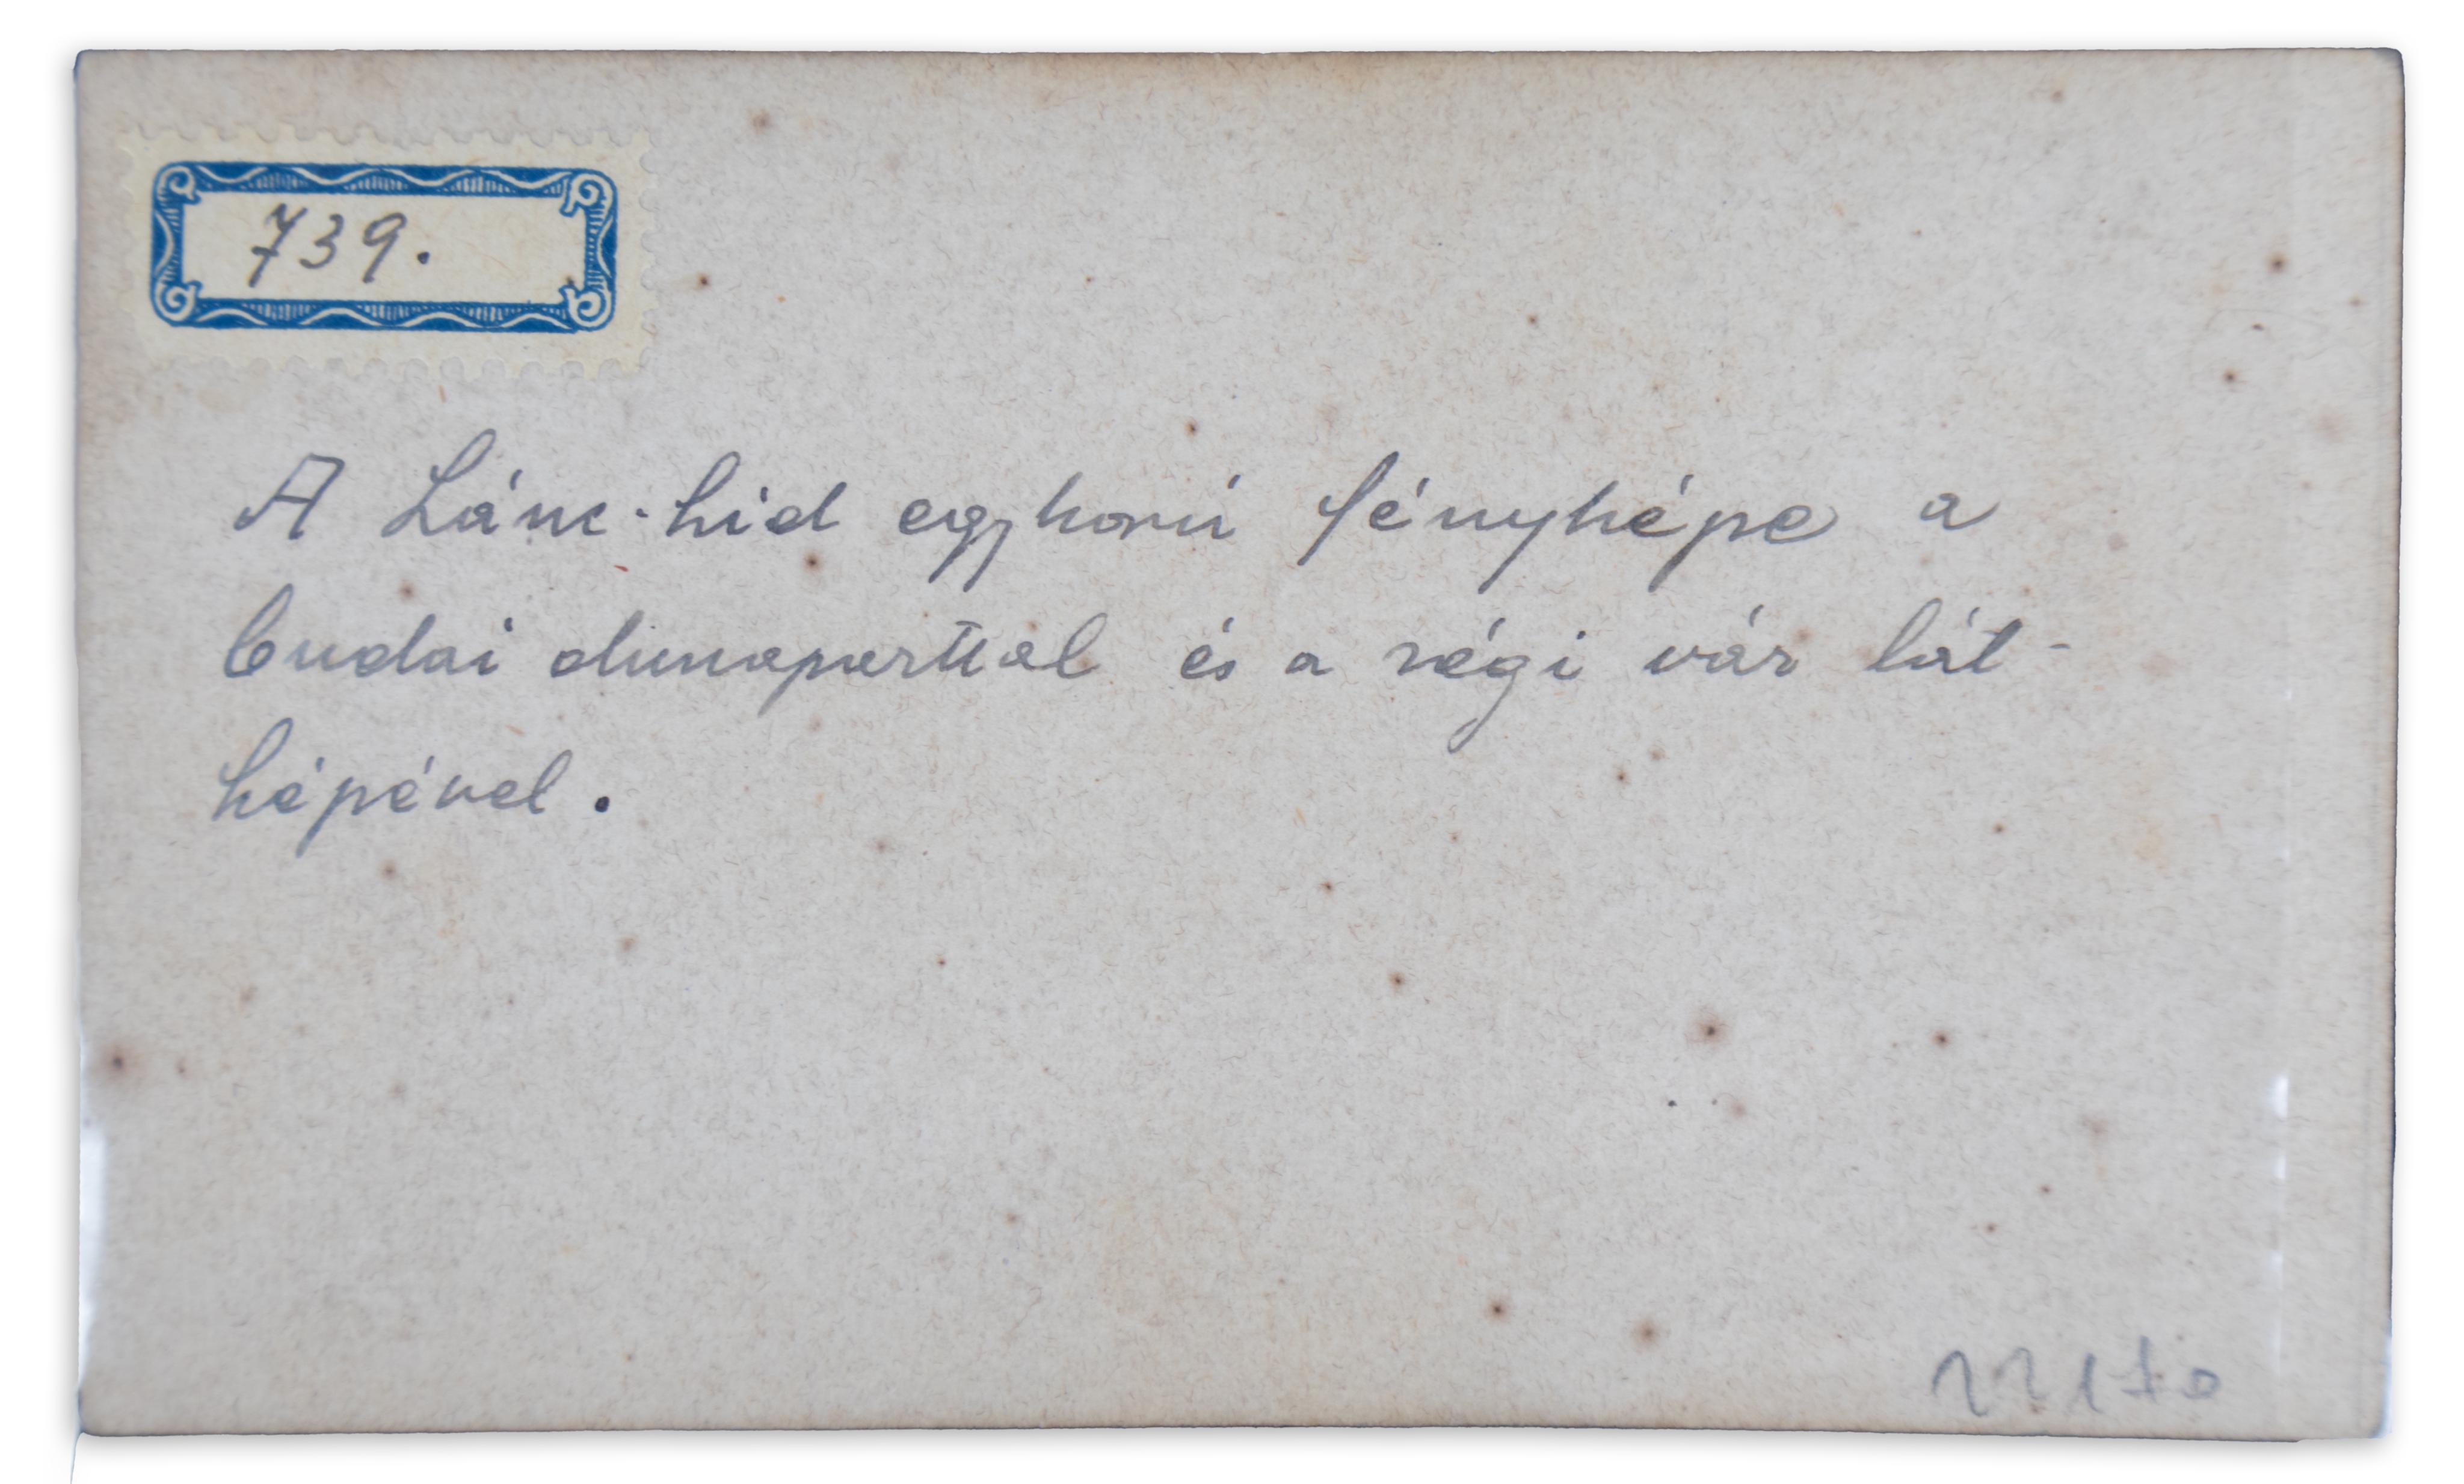 739.
A Lánc-hid egykorú fényképe a
budai dunaparttal és a régi vár lát-
képével.